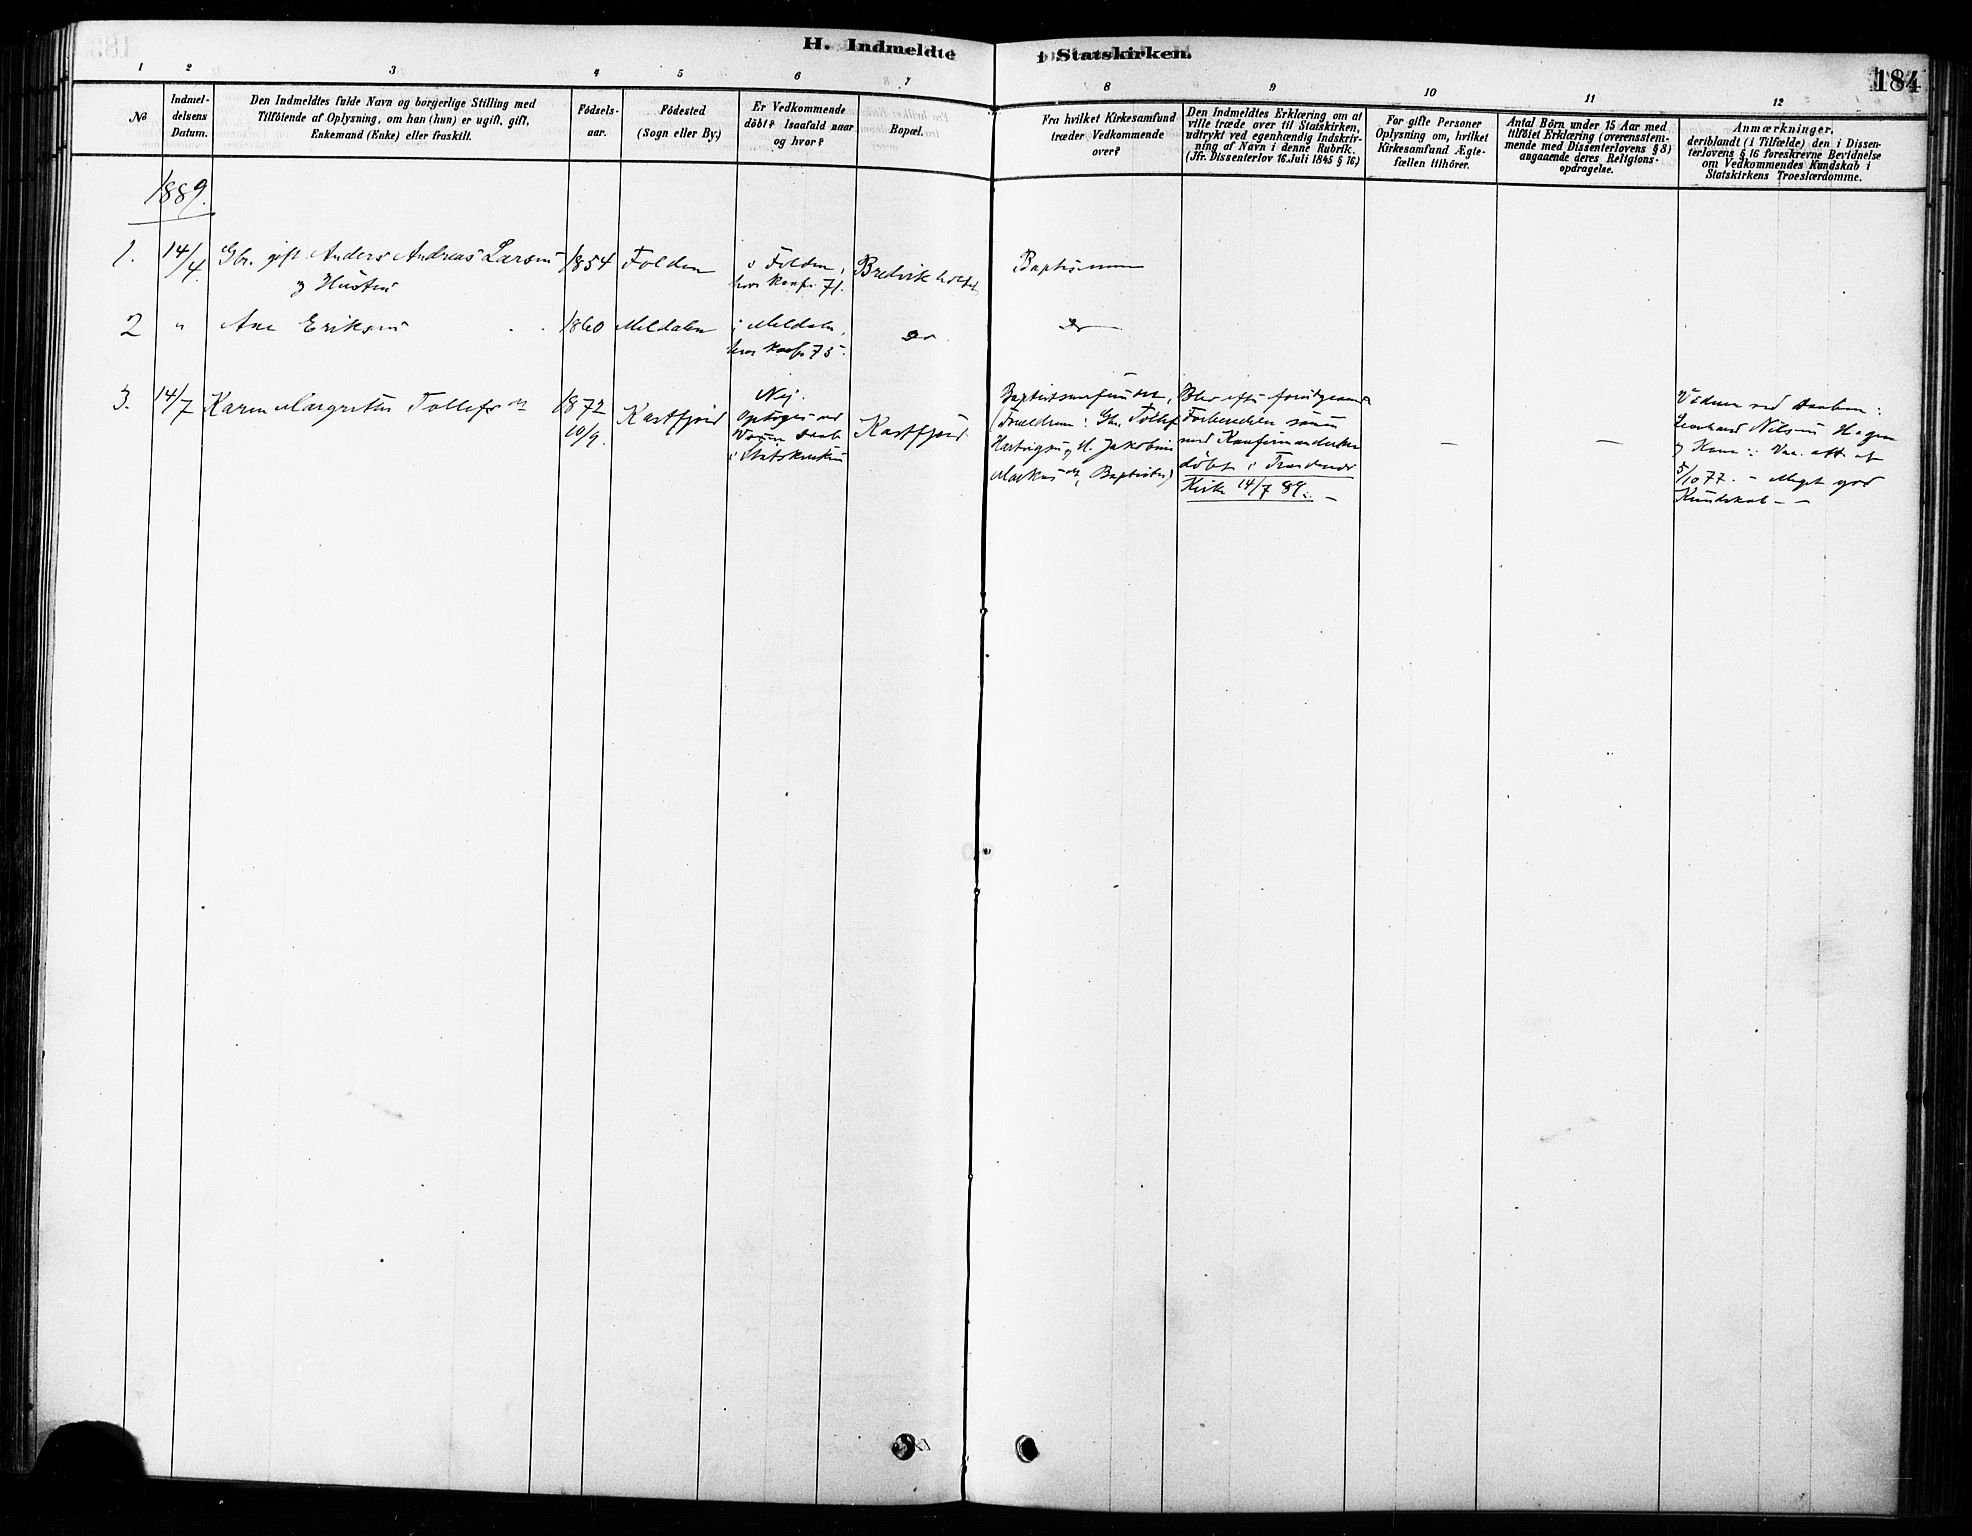 H. Indmeldte i Statskirken.
184
1 2 3 4 5 6 7 8 9 10 11 12
No
Indmel-
delsens
Datum.
Den Indmeldtes fulde Navn og borgerlige Stilling med
Tilföiende af Oplysning, om han (hun) er ugift, gift,
Enkemand (Enke) eller fraskilt.
Födsels-
aar.
Födested
(Sogn eller By.)
Er Vedkommende
döbt? Isaafald naar
og hvor?
Bopæl.
Fra hvilket Kirkesamfund
træder Vedkommende
over?
Den Indmeldtes Erklæring om at
ville træde over til Statskirken,
udtrykt ved egenhændig Indskriv-
ning af Navn i denne Rubrik.
(Jfr. Dissenterlov 16. Juli 1845 § 16.)
For gifte Personer
Oplysning om, hvilket
Kirkesamfund Ægte-
fællen tilhörer.
Antal Börn under 15 Aar med
tilföiet Erklæring (overensstem-
mende med Dissenterlovens § 8)
angaaende deres Religions-
opdragelse.
Anmærkninger,
deriblandt (i Tilfælde) den i Dissen-
terlovens § 16 foreskrevne Bevidnelse
om Vedkommendes Kundskab i
Statskirkens Troeslærdomme.
1889.
1.
14/4
Gbr. gift Anders Andreas Larsen
og Hustru
1854
Folden
i Folden,
hvor konf. 71.
Bredvik
Baptisterne
2
"
Ane Eriksen
1860
Meldalen
i Meldalen,
hvor konf. 75.
Do
Do
3.
14/7
Karen Margrethe Tollefsdr
1872
10/9.
Kastfjord
Nej.
Optoges ved
Daab
i Statskirken
Kastfjord
Baptistsamfundet,
(Forældrene: Gbr. Tollef
Hartvigsen og H. Jakobine
Markusdr, Baptister)
Blev efter foregaaende
Forberedelse
med Konfirmanderne
döbt i Trondenes
Kirke 14/7 89. –
–
–
Vidner ved Daaben:
Leonhard Nilsen Hagen
og Kone: Vac. att. af
5/10 77. – Meget god
Kundskab – –